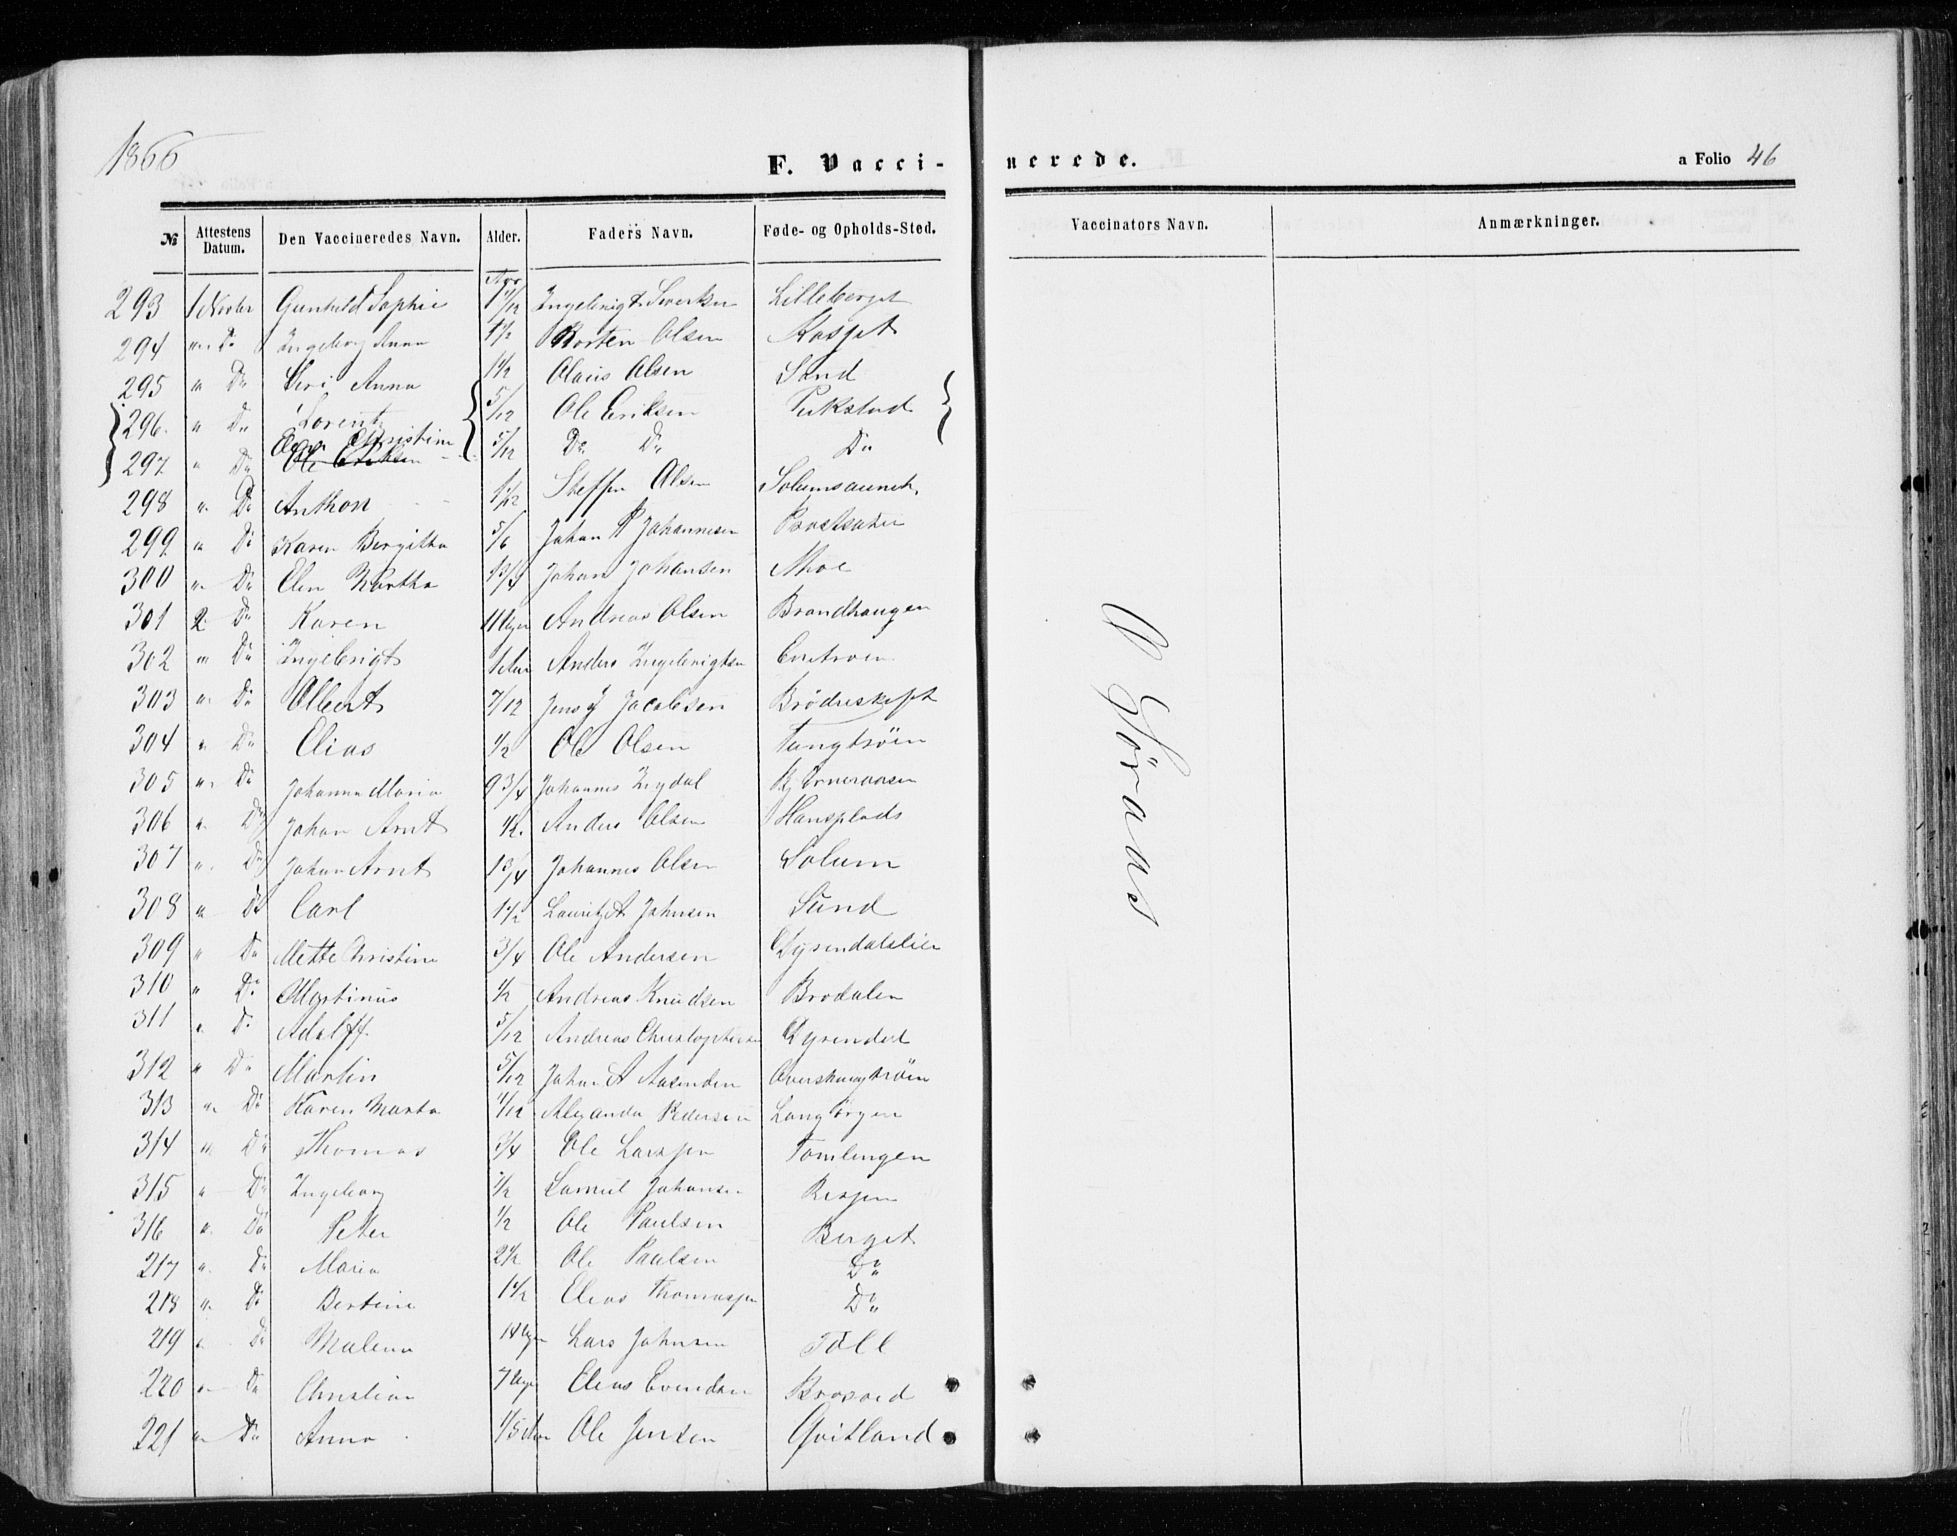 1866
F. Vacci-nerede.
a Folio 46
№ Attestens Datum. Den Vaccineredes Navn. Alder. Faders Navn. Føde- og Opholds-Sted. Vaccinators Navn. Anmærkninger.
Aar
293 1 Novbr Gunhild Sophie Ingebrigt Lilleberget
294 " Do Ingeborg Anna 1½ Morten Olsen
295 " Do Anna 1½ Olaus Olsen Sand
296 " Do Lorents 5/12 Ole Eriksen
297 " Do Christine Ole Eriksen 5/12 Do Do Do
298 " Do Anthon Steffen Olsen
299 " Do Karen Bergitha 5/6 Johan P Johannesen
300 " Do Elen Martha 1 3/4 Johan Johansen Moe
301 2 Do Karen 11 Uger Andreas Olsen Brandhaugen
302 " Do Ingebrigt 1 Aar Anders Ingebrigtsen
303 " Do Albert 7/12 Jens J Jacobsen Brødreskift
304 " Do Elias ½ Ole Olsen Tungtrøen
305 " Do Johanna Maria 9 3/4 Johannes
306 " Do Johan Arnt ½ Anders Olsen Hansplads
307 " Do Johan Arnt 1 3/4 Johannes Olsen Solum
308 " Do Carl 1½ Laurits A Johnsen Sund
309 " Do Mette Christine 3/4 Ole Andersen Dyrendalslien
310 " Do Martinus ½ Andreas Knudsen Brodalen
311 " Do Adolff 5/12 Andreas Christophersen Dyrendal
312 " Do Martin 5/12 Johan A Aasenden
313 " Do Karen Marta Alexander Pedersen
314 " Do Thomas 3/4 Ole Larsen Tomlingen
315 " Do Ingeborg ½ Samuel Johansen
316 " Do Peter ½ Ole Paulsen Berget
217 " Do Maria 2½ Ole Paulsen Do
218 " Do Bertine 1½ Elias Thomassen Do
219 " Do Malena 14 Uger Lars Johnsen
220 " Do Christian 7 Uger Elias
221 " Do Anna Ole Jensen Qvitland